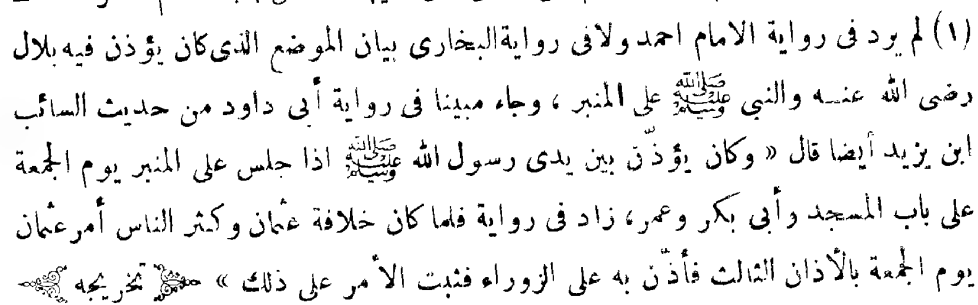 (١) لم يرد فى رواية الامام احمد ولافى رواية البخارى بيان الموضع الذى كان يؤذن فيه بلال
رضى الله عنه والنبي ﷺ على المنبر ، وجاء مبينا فى رواية أبى داود من حديث السائب
ابن يزيد أيضا قال « وكان يؤذّن بين يدى رسول الله ﷺ اذا جلس على المنبر يوم الجمعة
على باب المسجد وأبى بكر وعمر، زاد فى رواية فلما كان خلافة عثمان وكثر الناس أمر عثمان
يوم الجمعة بالأذان الثالث فأذّن به على الزوراء فثبت الأمر على ذلك » تخريجه